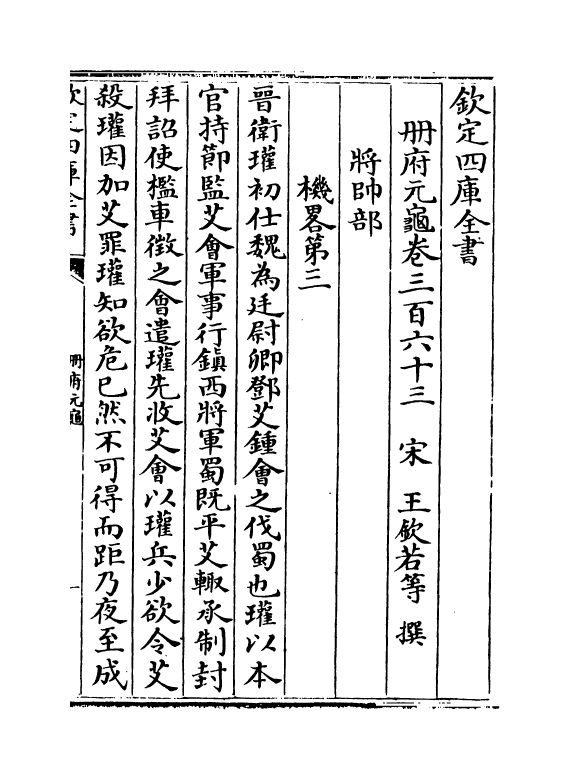 欽定四庫全書
册府元龜卷三百六十三 宋 王欽若等 撰
將帥部
機畧第三
晉衛瓘初仕魏為廷尉卿鄧艾鍾會之伐蜀也瓘以本
官持節監艾會軍事行鎮西將軍蜀既平艾輙承制封
拜詔使檻車徵之會遣瓘先收艾會以瓘兵少欲令艾
殺瓘因加艾罪瓘知欲危已然不可得而距乃夜至成
欽定四庫全書
册府元龜
一